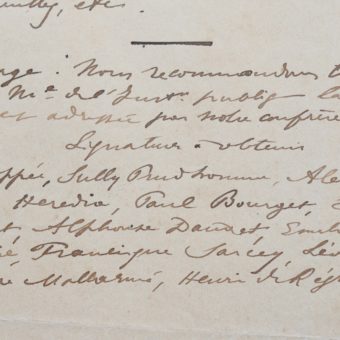 etc.
: Nous recommandons
Mre de l'Instr. publiq
adressée par notre confrère
Signatures obtenues
ppée, Sully Prudhomme, Ale
Heredia, Paul Bourget,
t Alphonse Daudet, Emil
Francisque Sarcey, Léo
Mallarmé, Henri de Rég